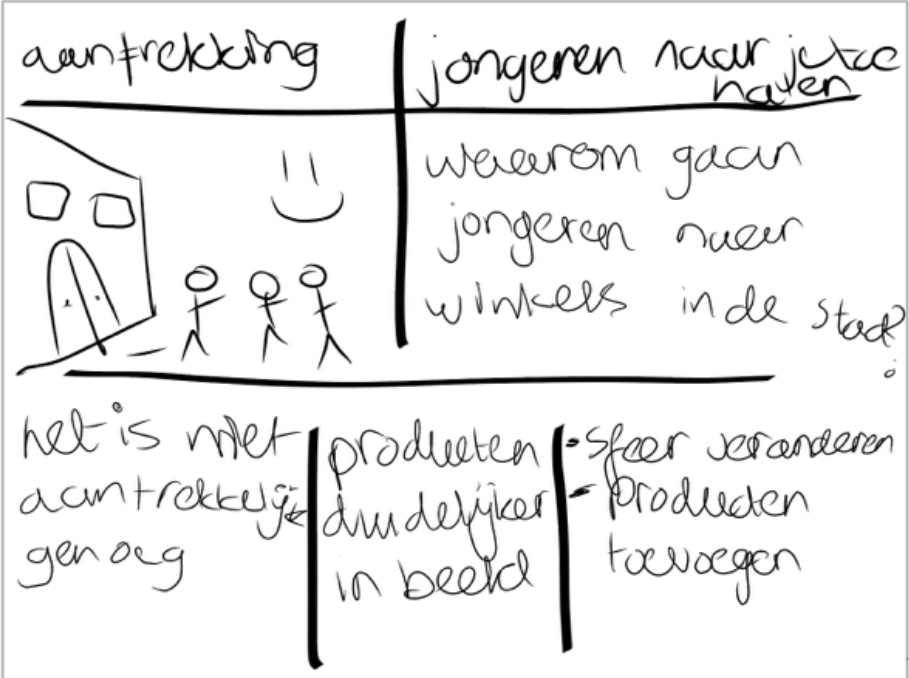 aantrekking
jongeren naar jutce
halen
waarom gaan
jongeren naar
winkels in de stad?
het is niet
aantrekkelijk
genoeg
producten
duidelijker
in beeld
- sfeer veranderen
- producten
toevoegen